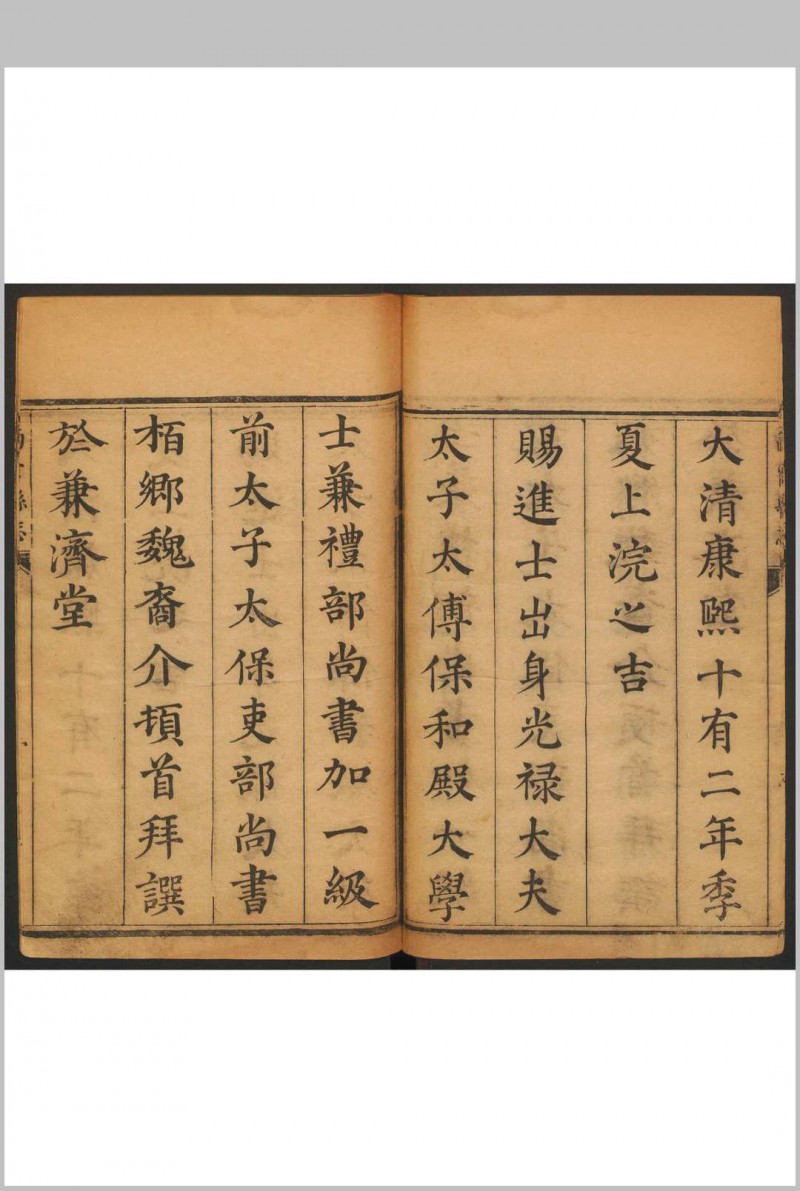 大清康熙十有二年季
夏上浣之吉
賜進士出身光禄大夫
太子太傅保和殿大學
士兼禮部尚書加一級
前太子太保吏部尚書
栢鄉魏裔介頓首拜譔
於兼濟堂